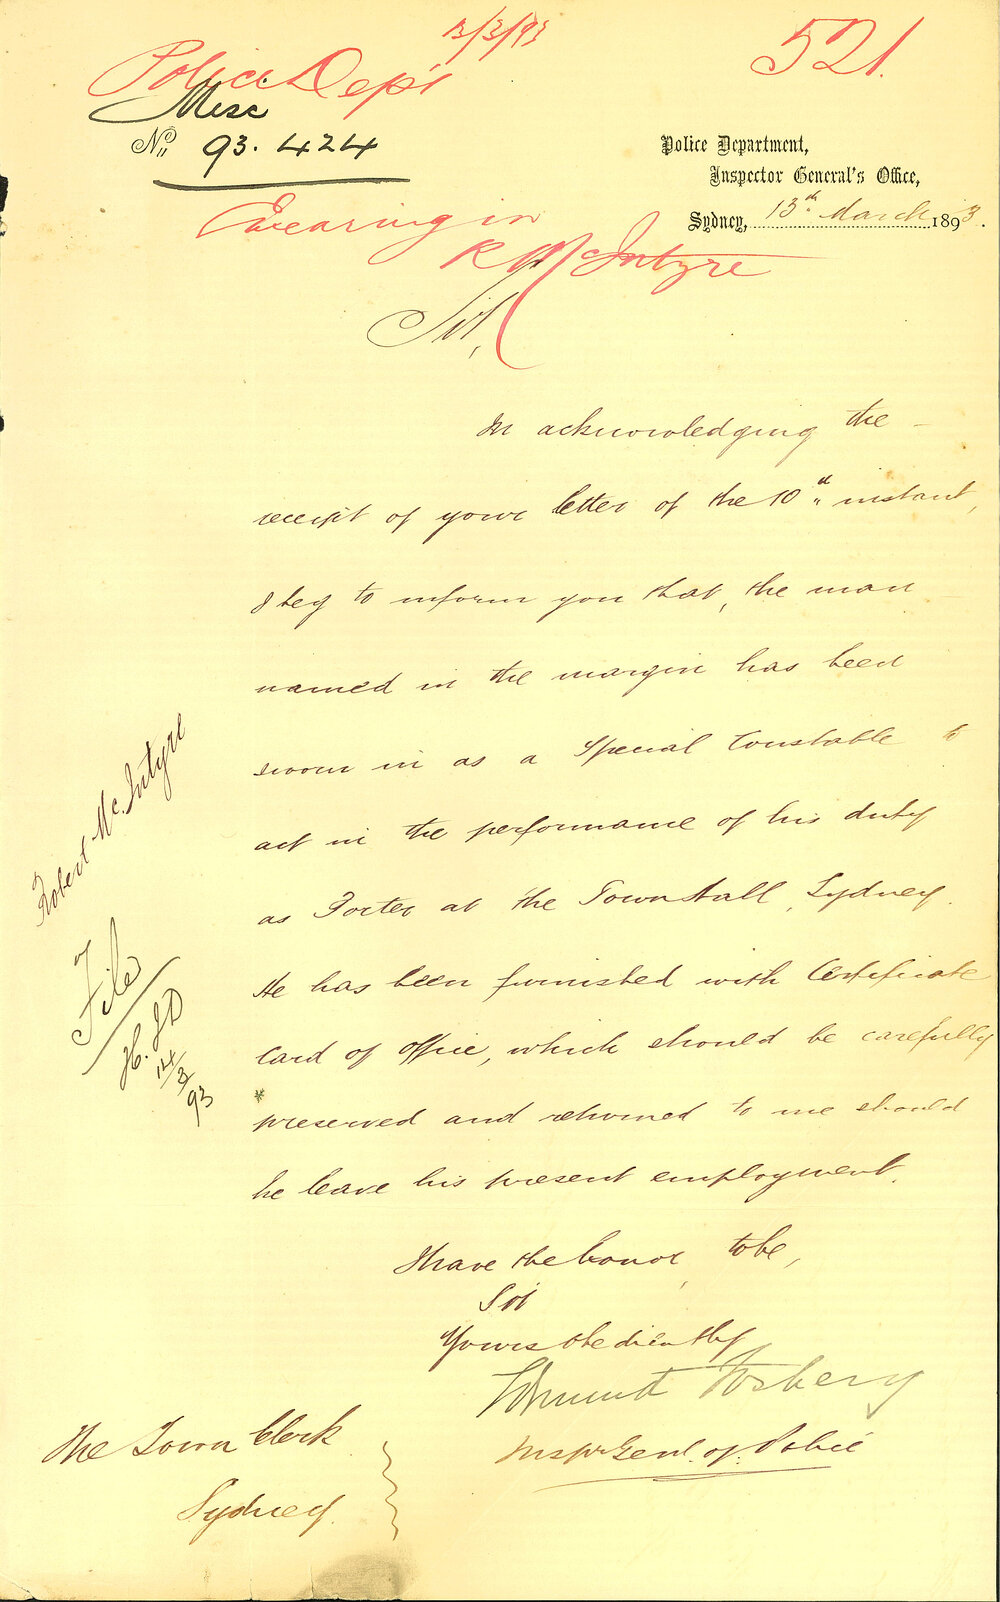 13/3/93
521.
Police Dep't
Misc
No. 93.424
Police Department,
Inspector General's Office,
Sydney, 13th March 1893.
Swearing in
R McIntyre
Sir,
In acknowledging the
receipt of your letter of the 10th instant,
I beg to inform you that, the man
named in the margin has been
sworn in as a Special Constable to
act in the performance of his duty
as Porter at the Town Hall, Sydney.
He has been furnished with Certificate
Card of Office, which should be carefully
preserved and returned to me should
he leave his present employment.
Robert McIntyre
File
14/3/93
I have the honor to be,
Sir
Yours obediently
Edmund Fosbery
Insp. Genl. of Police
The Town Clerk
Sydney.